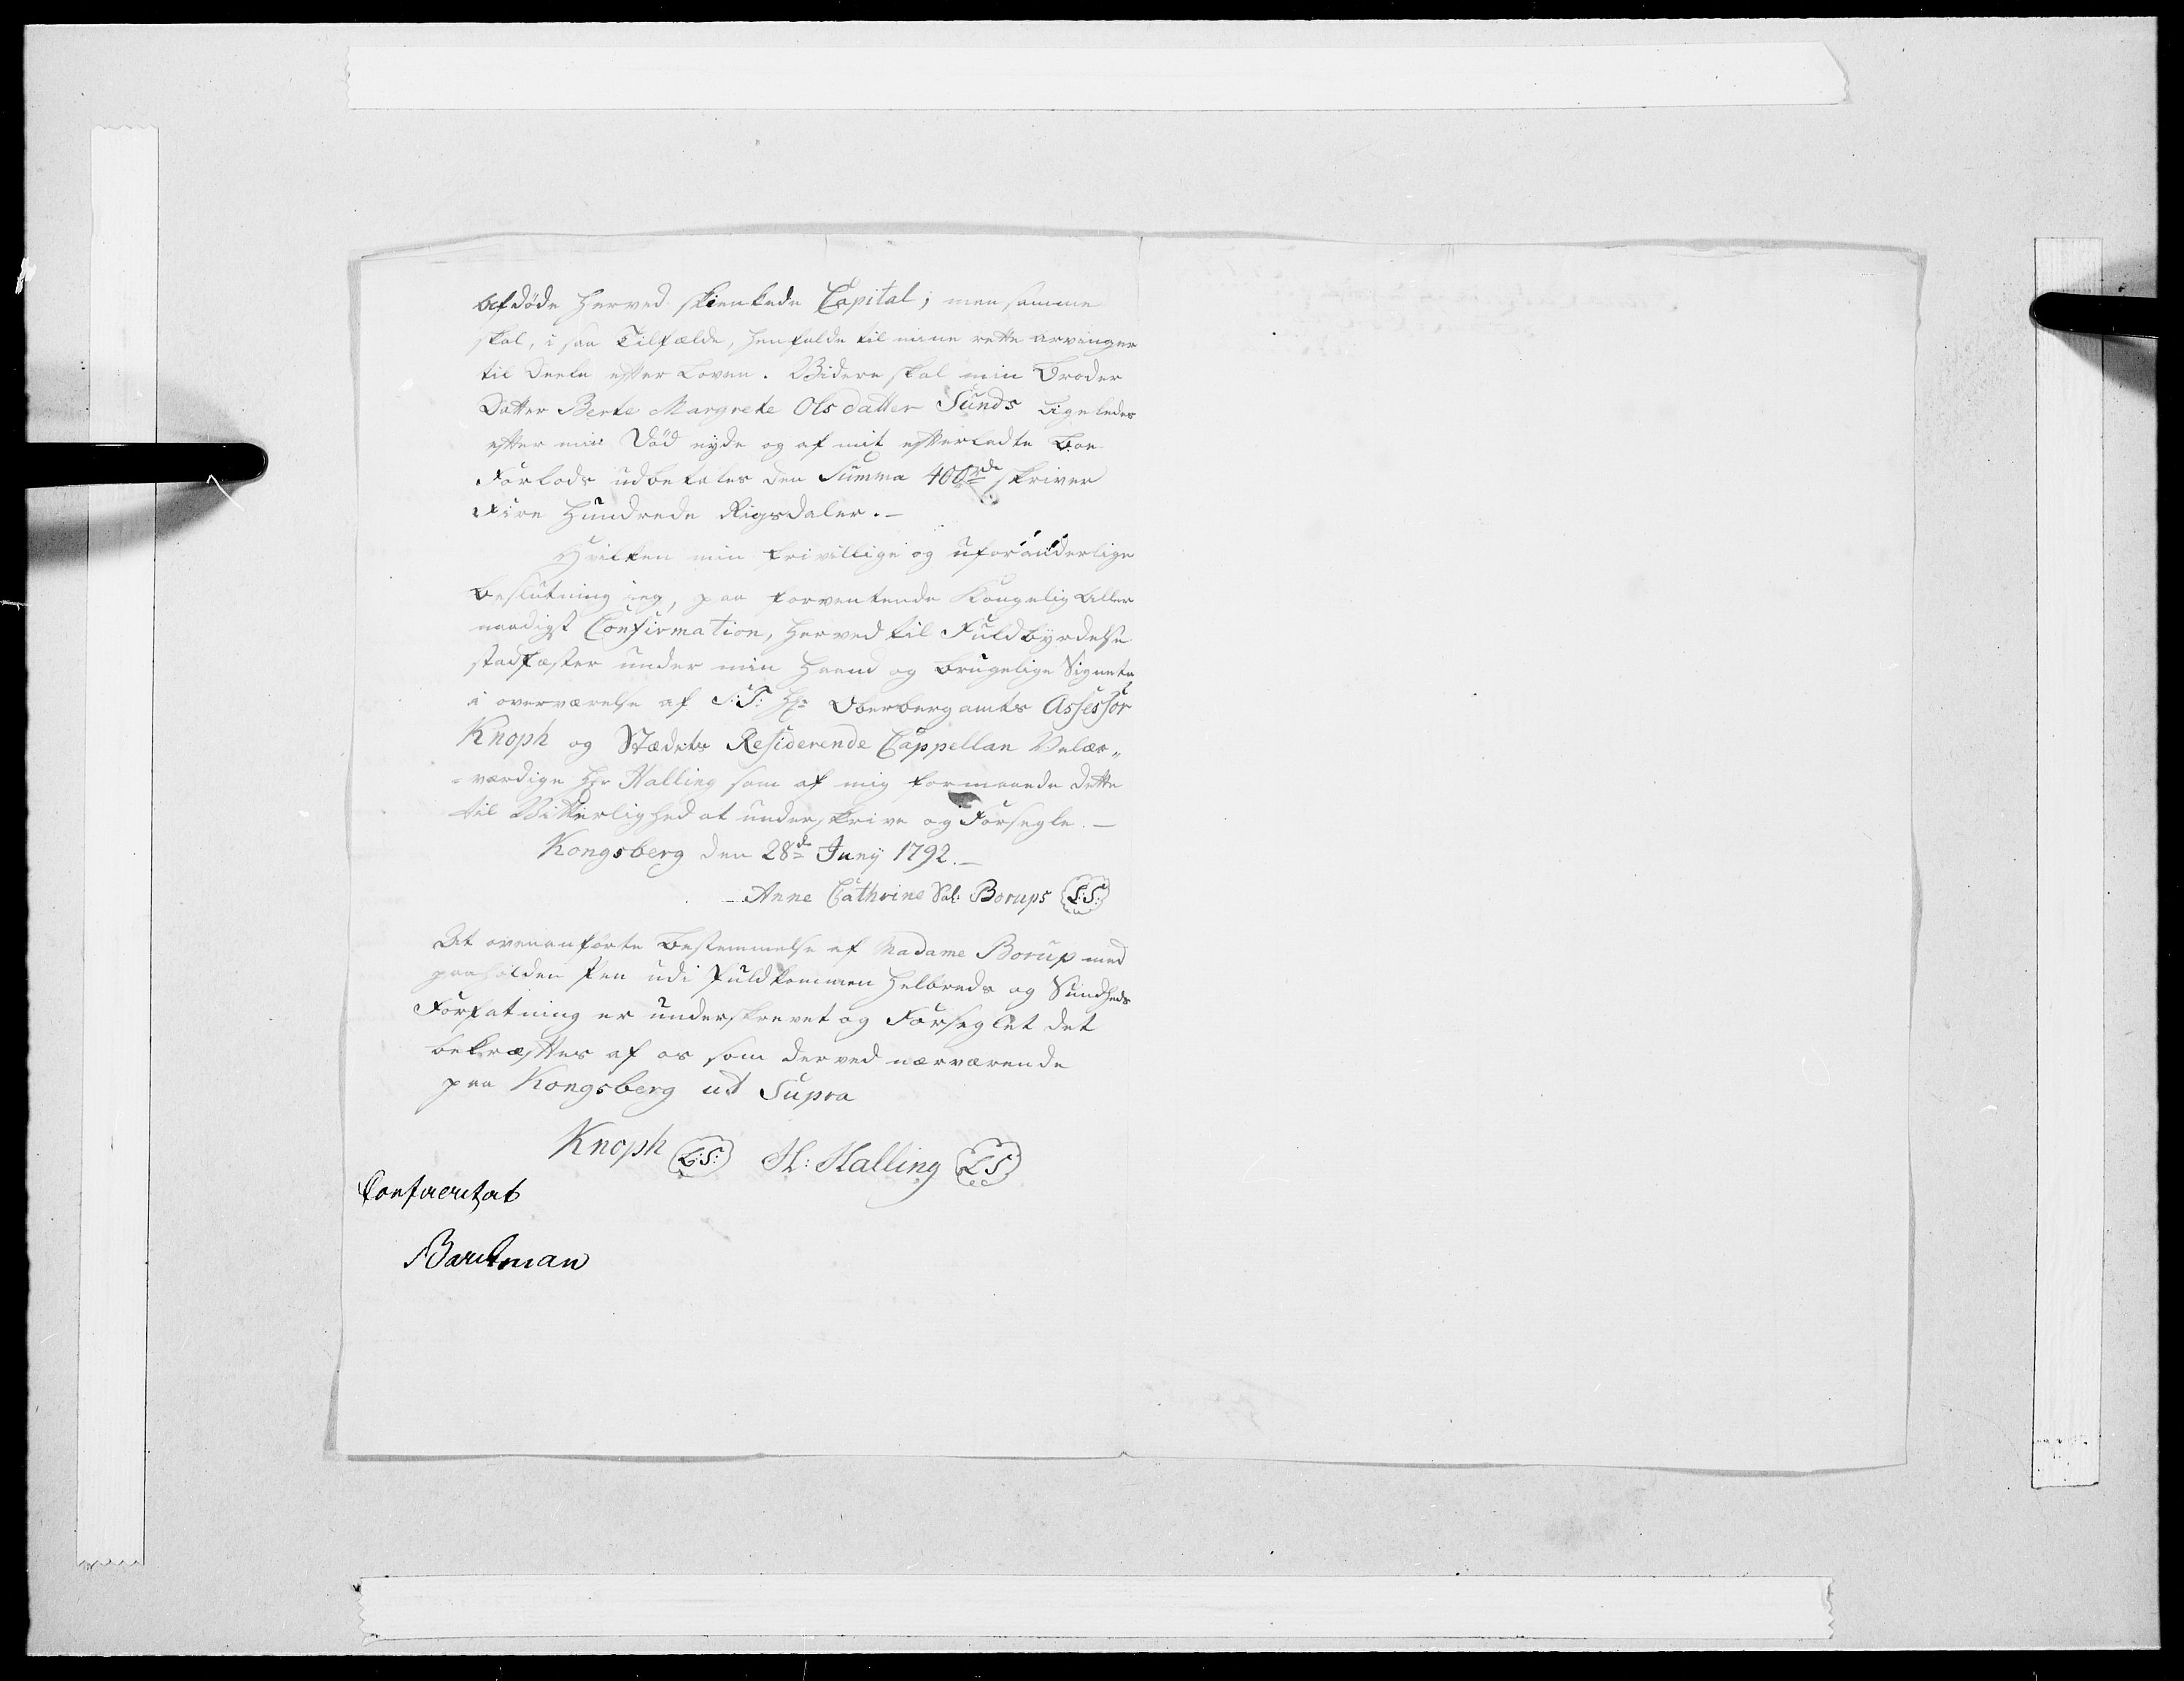 Afdöde herved skienkede Capital; men samme
skal, i saa Tilfælde, henfalde til mine rette arvinger
til Deele efter Loven. Videre skal min Broder
Datter Berte Margrete Olsdatter Sunds ligeledes
efter min Död nyde og af mit efterladte Boe
Forlods udbetales den Summa 400 rd skriver
Fire Hundrede Rigsdaler.-
Hvilken min frivillige og uforanderlige
Beslutning ieg, paa forventende Kongelig Aller
naadigst Confirmation, herved til Fuldbyrdelse
stadfæster under min Haand og brugelige Signete
i overværelse af S:T: Hr: Oberbergamts Assessor
Knoph og Stædets Residerende Cappellan Velær„
-værdige Hr Halling som af mig formaaede dette
til Vitterlighed at underskrive og Forsegle.-
Kongsberg den 28de Juny 1792.-
Anne Cathrine Sal: Borups L:S:
At ovenanförte bestemmelse af Madame Borup med
paaholden Pen udi fuldkommen Helbreds og Sundheds
Forfatning er underskrevet og Forseglet det
bekræftes af os som derved nærværende
paa Kongsberg ut Supra
Knoph L:S: H: Halling LS